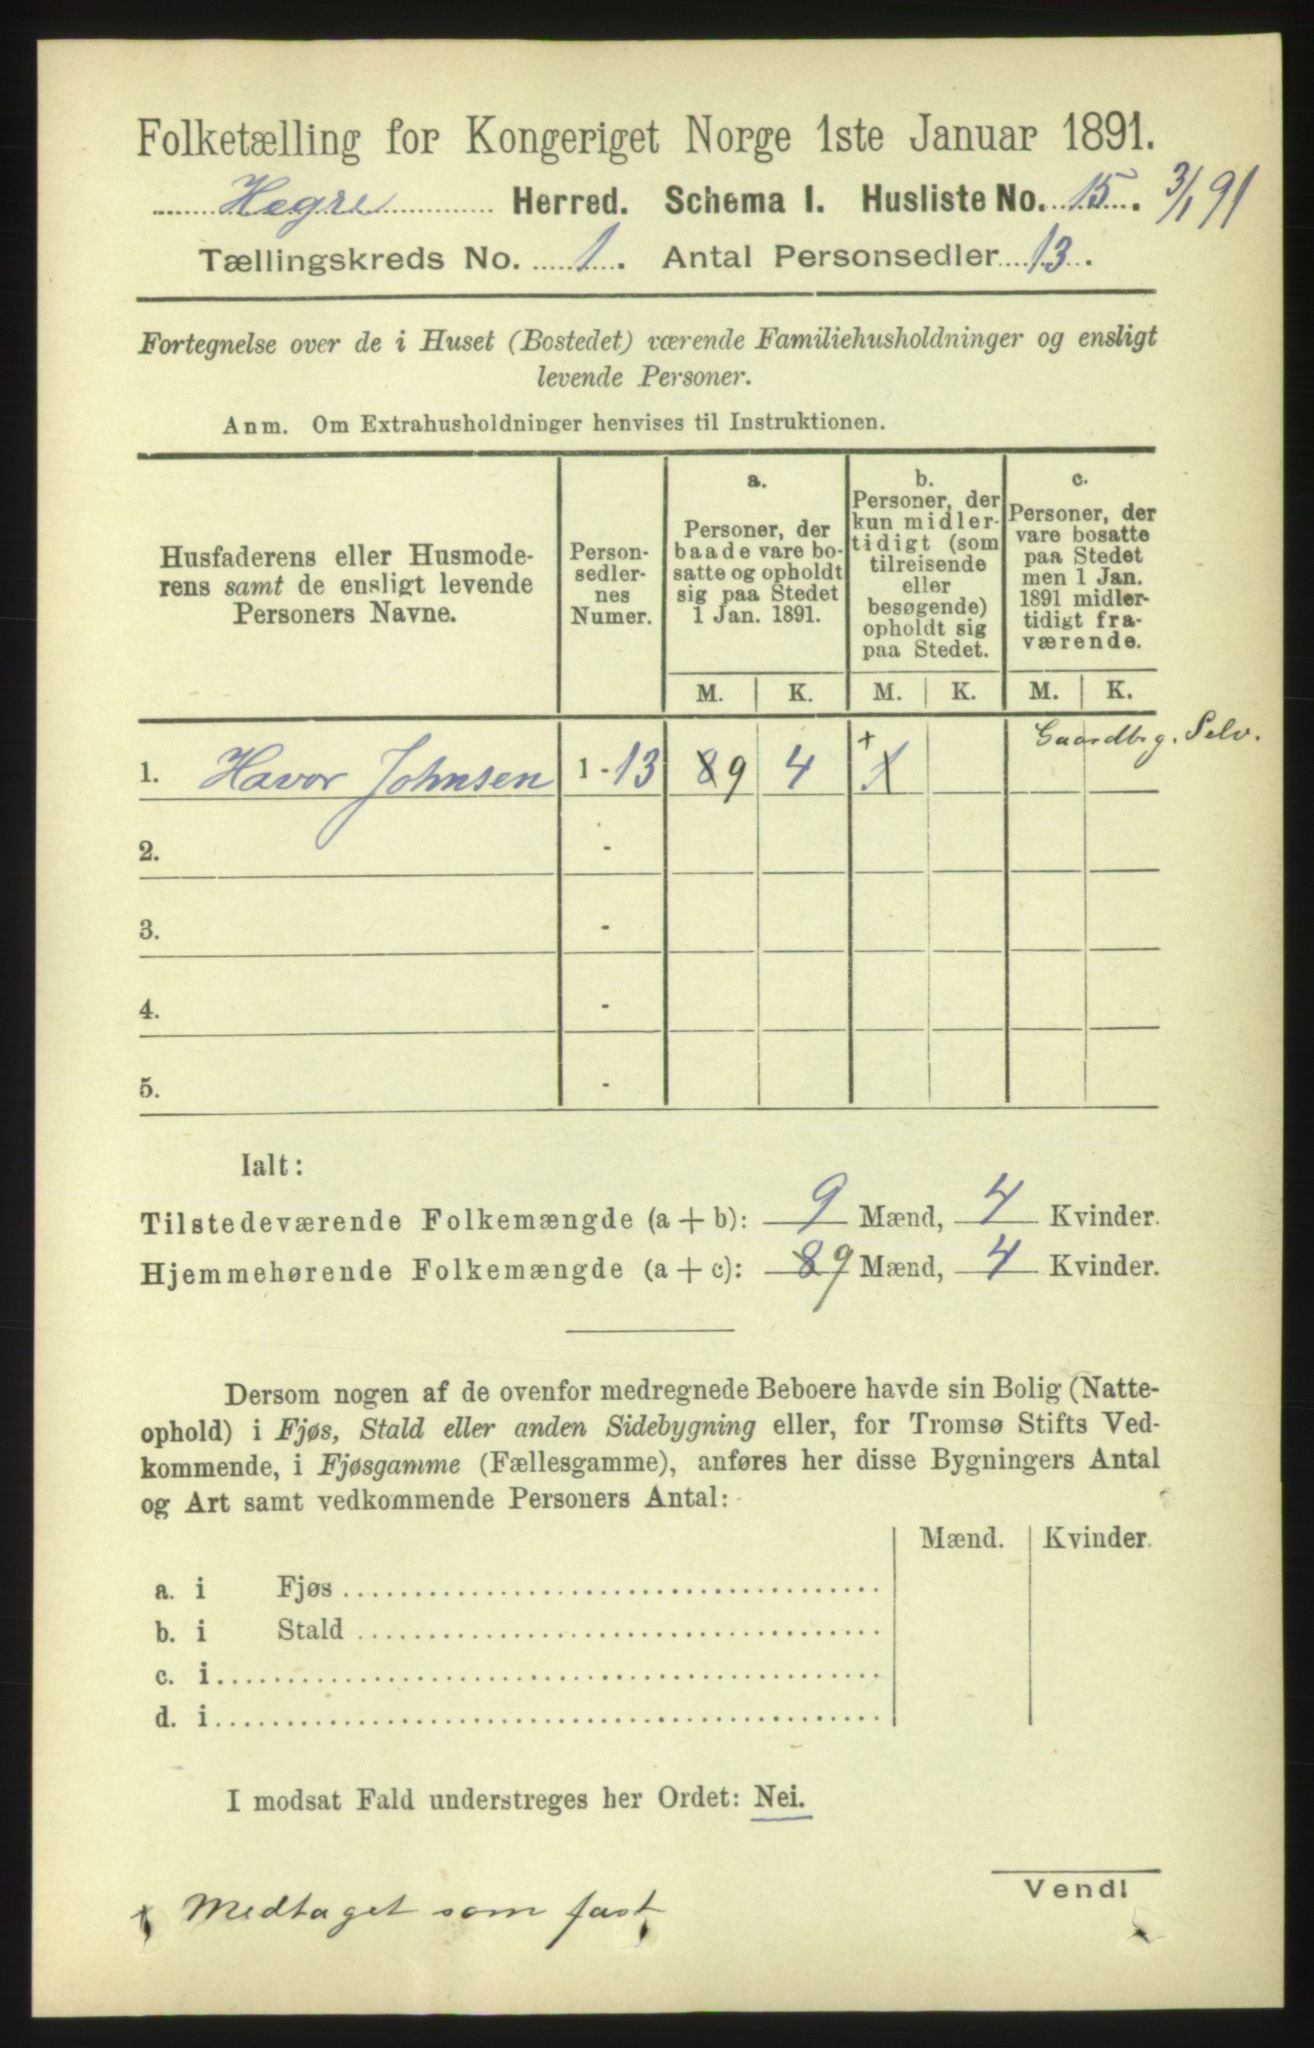 Folketælling for Kongeriget Norge 1ste Januar 1891.
Hegre Herred. Schema I. Husliste No. 15. 3/1 91
Tællingskreds No. 1. Antal Personsedler 13.
Fortegnelse over de i Huset (Bostedet) værende Familiehusholdninger og ensligt
levende Personer.
Anm. Om Extrahusholdninger henvises til Instruktionen.
Husfaderens eller Husmode-
rens samt de ensligt levende
Personers Navne.
Person-
sedler-
nes
Numer.
a.
Personer, der
baade vare bo-
satte og opholdt
sig paa Stedet
1 Jan. 1891.
b.
Personer, der
kun midler-
tidigt (som
tilreisende
eller
besøgende)
opholdt sig
paa Stedet.
c.
Personer, der
vare bosatte
paa Stedet
men 1 Jan.
1891 midler-
tidigt fra-
værende.
M. K. M. K. M. K.
Gaardbrg. Selv.
1. Havor Johnsen 1-13 8 9 4 + 1
2. -
3. -
4. -
5. -
Ialt:
Tilstedeværende Folkemængde (a + b): 9 Mænd, 4 Kvinder.
Hjemmehørende Folkemængde (a + c): 8 9 Mænd, 4 Kvinder.
Dersom nogen af de ovenfor medregnede Beboere havde sin Bolig (Natte-
ophold) i Fjøs, Stald eller anden Sidebygning eller, for Tromsø Stifts Ved-
kommende, i Fjøsgamme (Fællesgamme), anføres her disse Bygningers Antal
og Art samt vedkommende Personers Antal:
Mænd. Kvinder.
a. i Fjøs
b. i Stald
c. i
d. i
I modsat Fald understreges her Ordet: Nei.
Vend!
+ Medtaget som fast